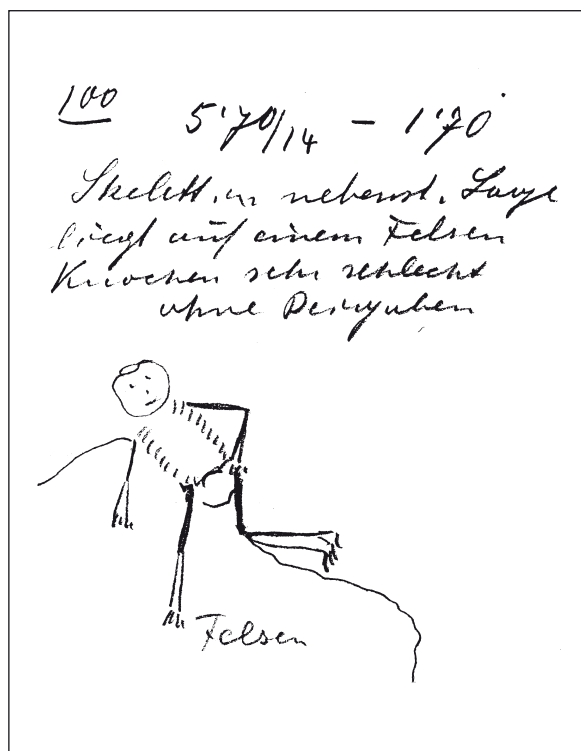 100
5'70/14 – 1'70
Skelett in nebenst. Lage
liegt auf einem Felsen
Knochen sehr schlecht
ohne Beigaben
Felsen